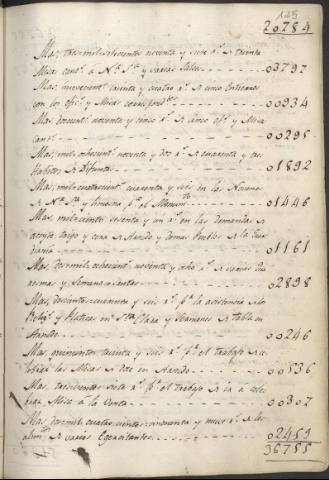 125
20784
Mas, tres mil setecientos noventa y siete r.s de treinta
Misas cant.s á N.ª S.ª y varias
03797
Mas, novecientos treinta y quatro r.s de cinco
con los ofic.s y Misas
00934
Mas, doscient.s noventa y cinco r.s de cinco of.s y Misas
cant.s
00295
Mas, mil ochocient.s noventa y dos r.s de quarenta y tres
de Difuntos
01892
Mas, mil quatrocient.s quarenta y seis en las Novenas
de N.ª S.ª y limosna p.ª el
01446
Mas, mil ciento sesenta y un r.s en las demandas de
aceyte, trigo y de Arnedo y demas Pueblos de la
01161
Mas, dos mil ochocient.s noventa y ocho r.s de varias
y Semanas santas
02898
Mas, doscientos quarenta y seis r.s p.r la asistencia de los
Relig.s y Platicas en S.ta Clara y Sermones de tabla en
Arnedo
00246
Mas, quinientos treinta y seis r.s p.r el trabajo de
las Misas de doce en Arnedo
00536
Mas, trescientos siete r.s p.r el trabajo de ir á
Misa á la Venta
00307
Mas, dos mil quatrocientos cinquenta y nueve r.s de las
de varios Exercitantes
02459
36755